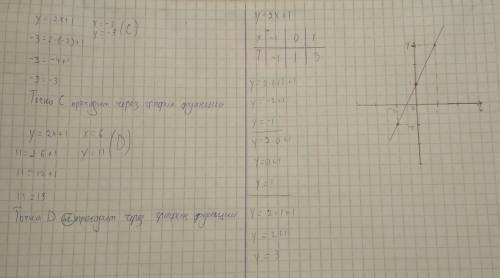 y = 2x+1   x=-2
y=-3 (C)
-3=2·(-2)+1
-3=-4+1
-3=-3
Точка C проходит через график функции
y = 2x+1   x=6
11=2·6+1   y=11 (D)
11=12+1
13=13
Точка D не проходит через график функции
y=2x+1
x -1 0 1
y -1 1 3
y=2·(-1)+1
y=-2+1
y=-1
y=2·0+1
y=0+1
y=1
y=2·1+1
y=2+1
y=3